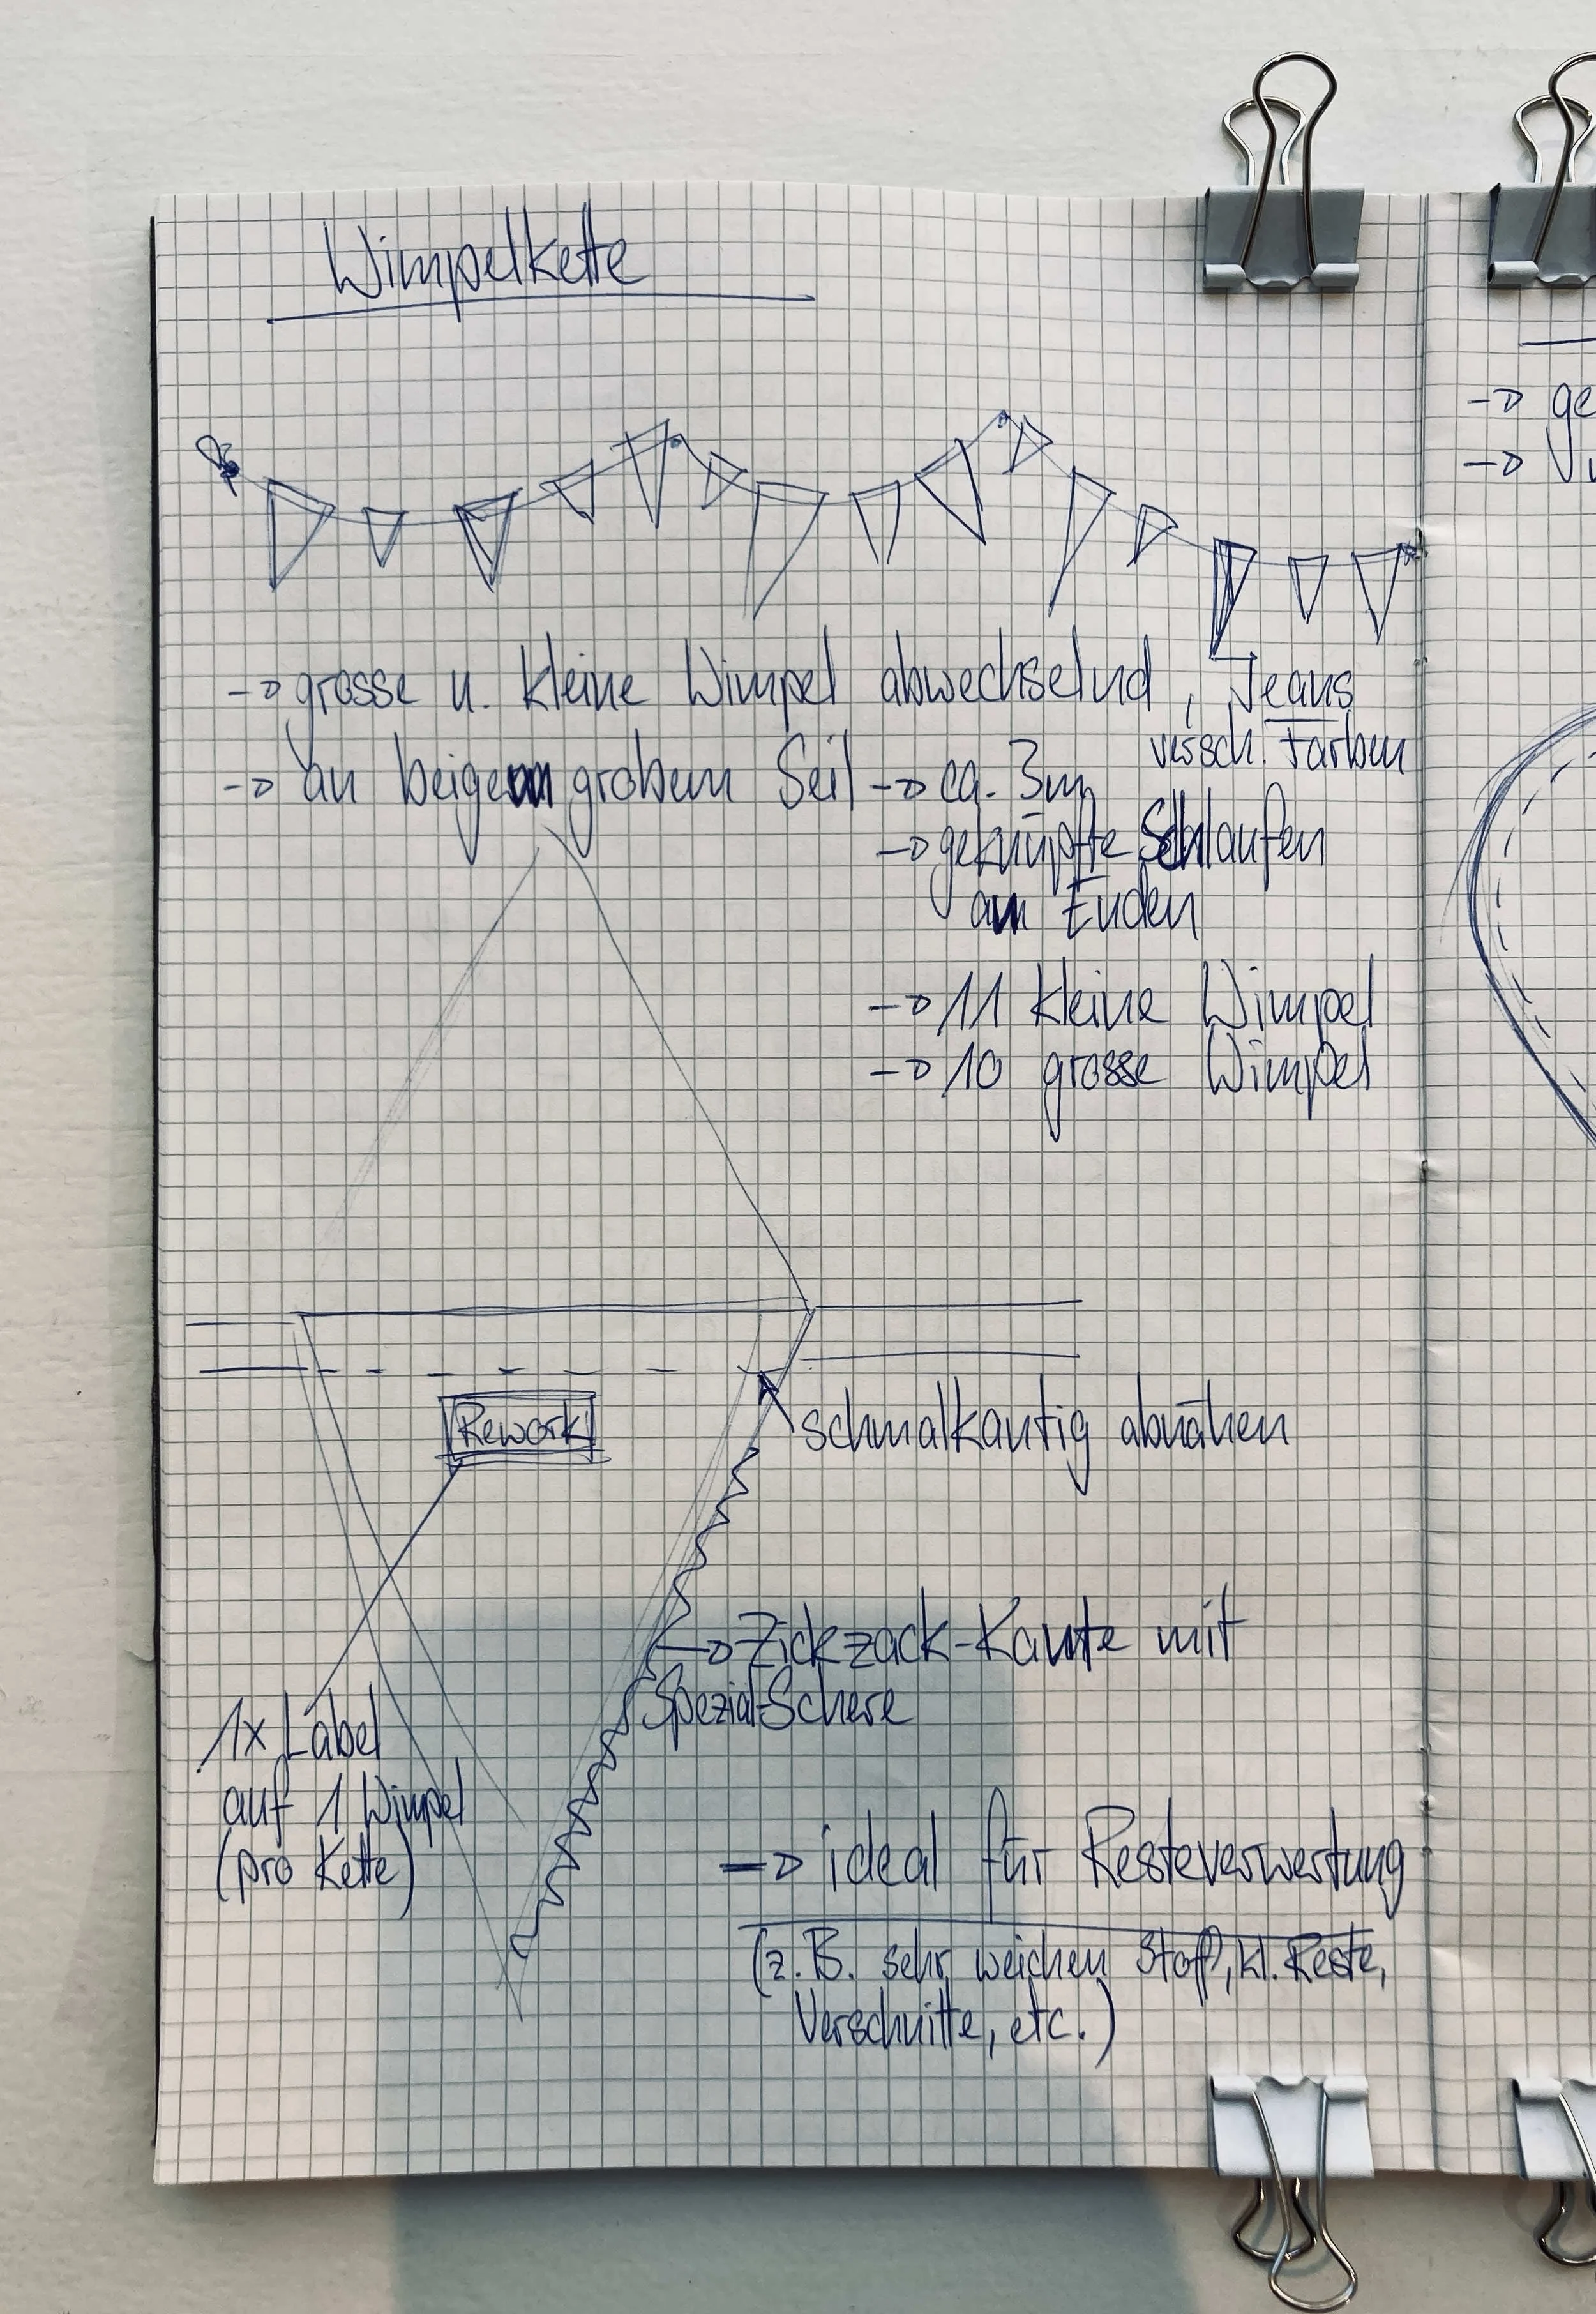 Wimpelkette
-> grosse u. kleine Wimpel abwechselnd, Jeans
versch. Farben
-> an beigem grobem Seil -> ca. 3m
-> geknüpfte Schlaufen
an Enden
-> 11 kleine Wimpel
-> 10 grosse Wimpel
Rework
schmalkantig abnähen
-> Zickzack-Kante mit
Spezial-Schere
1x Label
auf 1 Wimpel
(pro Kette)
-> ideal für Resteverwertung
(z.B. sehr weichen Stoff, kl. Reste,
Verschnitte, etc.)
-> ge
->